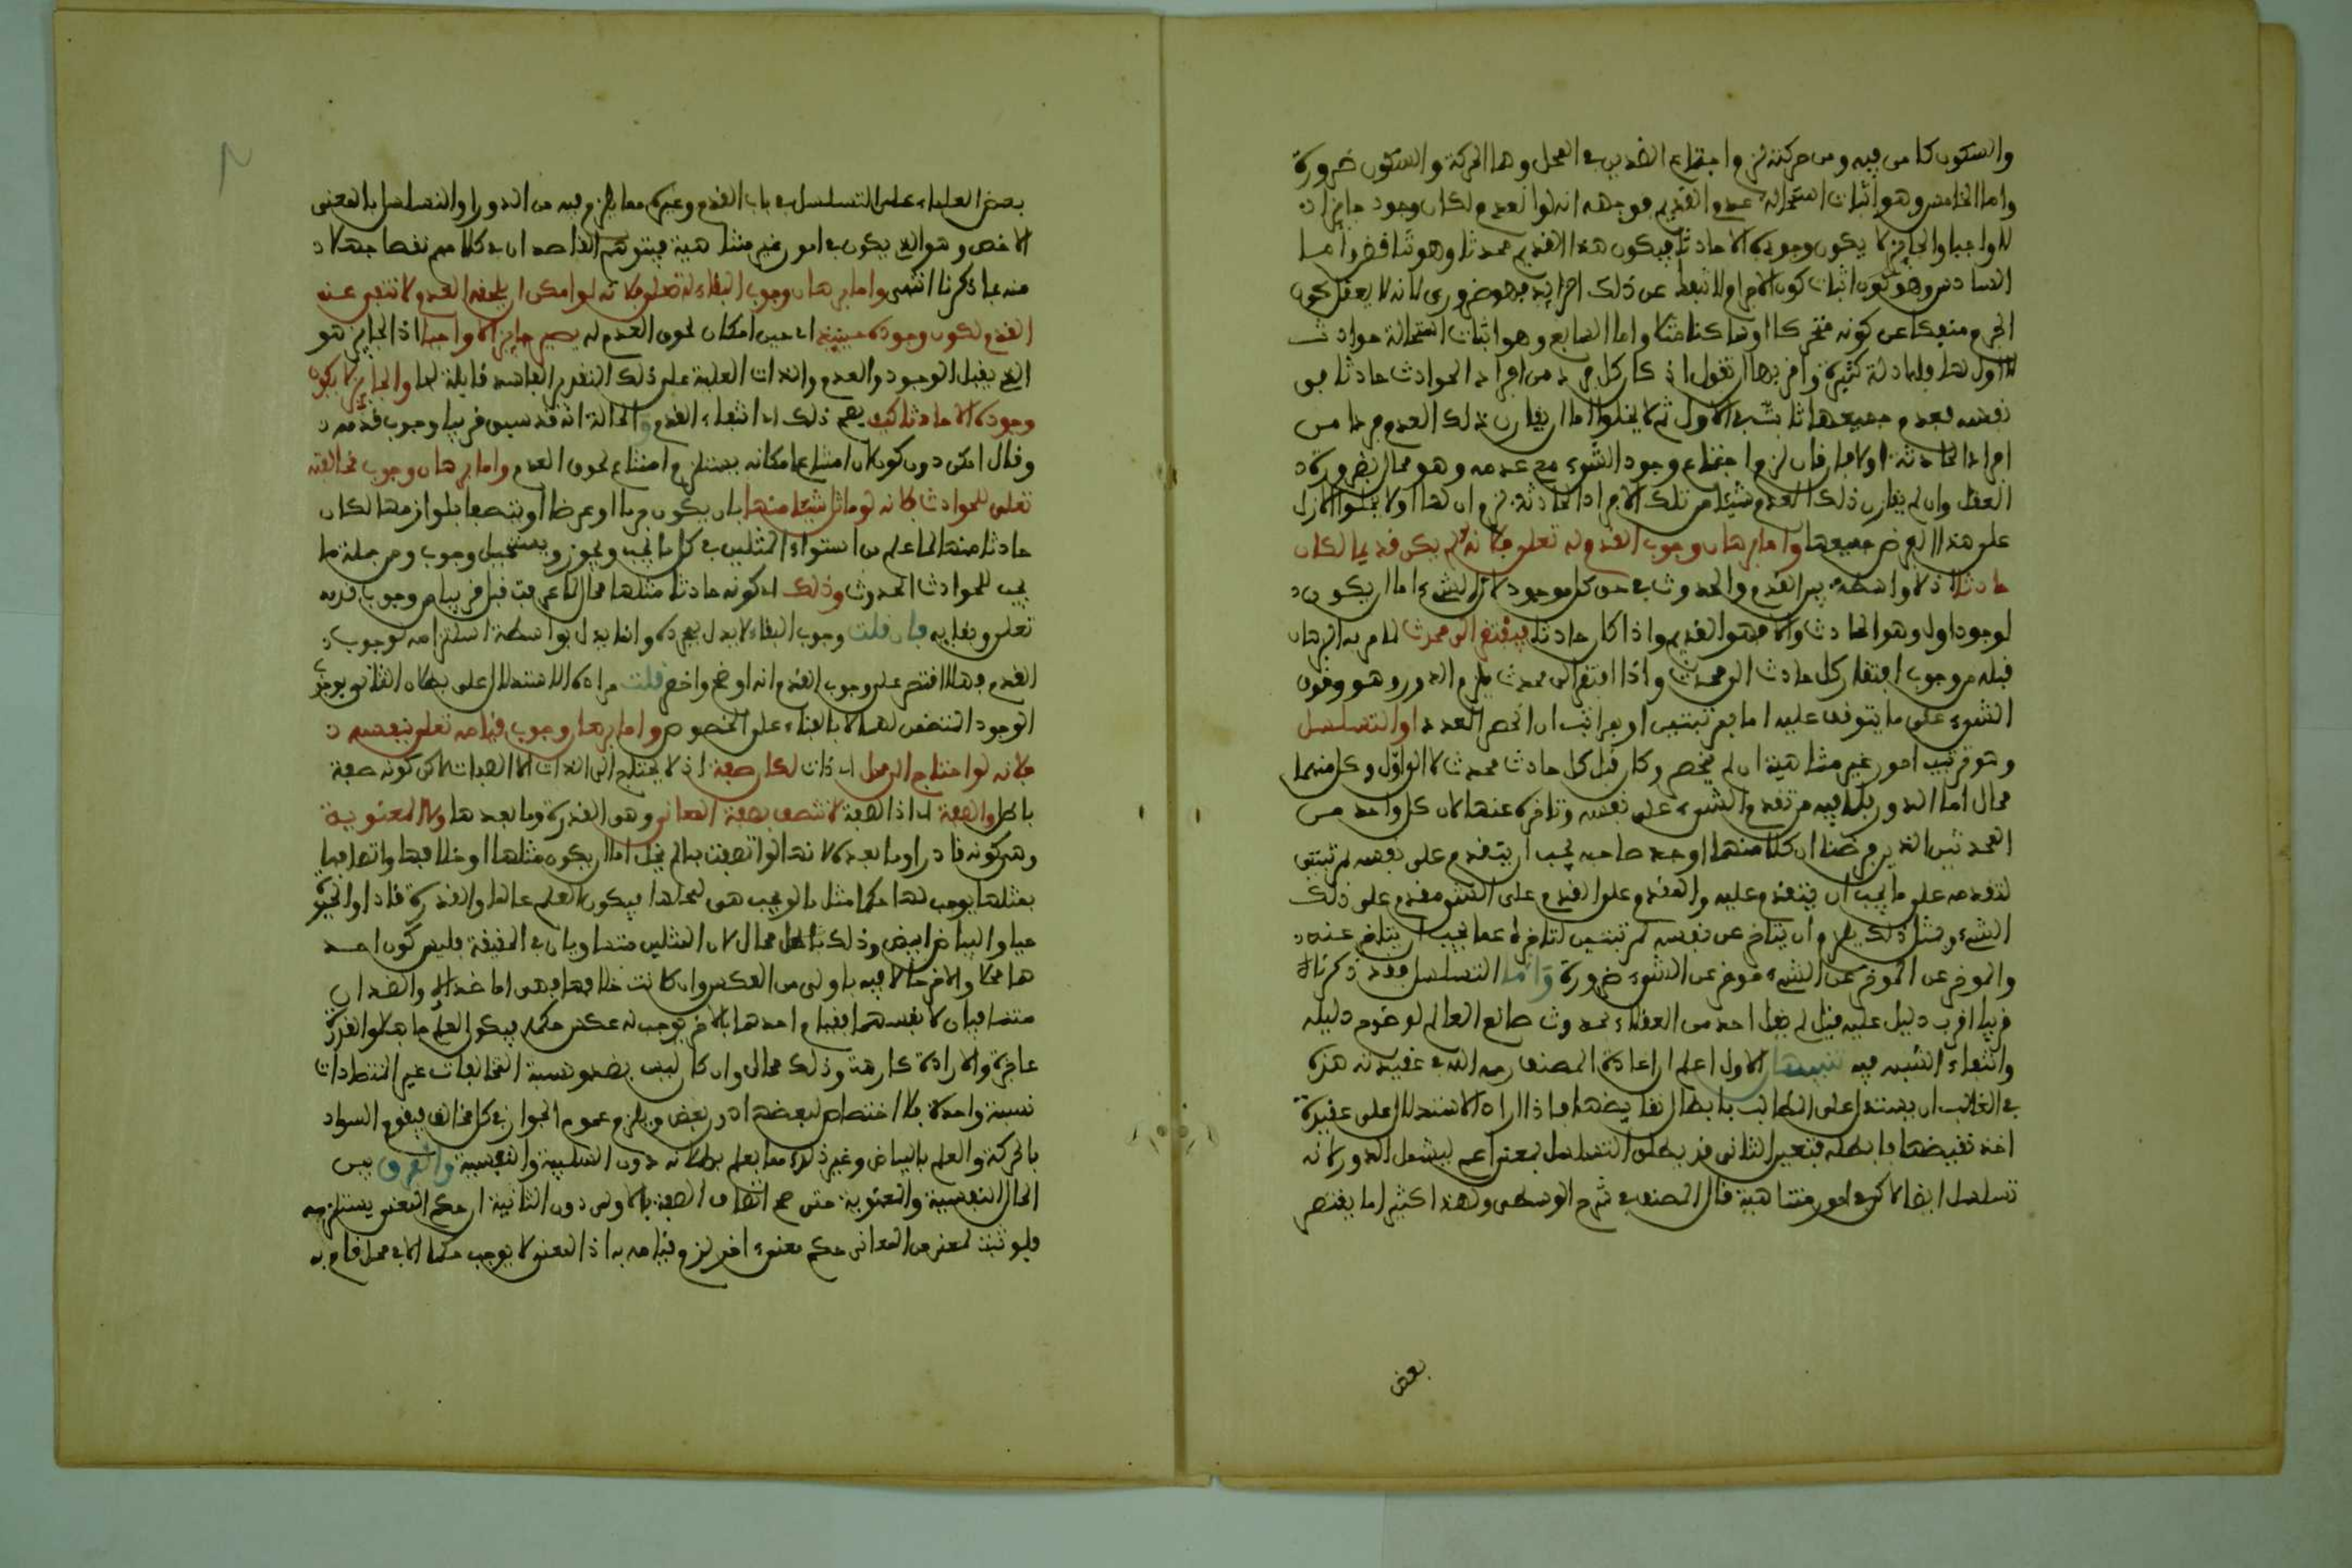 والسكون كامن فيه ومن حركته لزم اجتماع الضدين في المحل وهما الحركة والسكون ضرورة
واما الخامس وهو اثبات استحالة عدم القديم فوجهه انه لو انعدم لكان وجوده جايزا
لا واجبا والجايز لا يكون وجوده الا حادثا فيكون هذا القديم محدثا وهو تناقض واما
السادس وهو اثبات كون الاجرام لا تنفك عن ذلك الزايد فهو ضروري لانه لا يعقل كون
الجرم منفكا عن كونه متحركا او ساكنا مثلا واما السابع وهو اثبات استحالة حوادث
لا اول لها فله ادلة كثيرة واقربها ان تقول اذا كان كل فرد من افراد الحوادث حادثا في
نفسه فعدم جميعها ثابت في الازل ثم لا يخلوا اما ان يقارن ذلك العدم فردا من
افراد الحادثة اولا فان قارن لزم اجتماع وجود الشيء مع عدمه وهو محال بضرورة
العقل وان لم يقارن ذلك العدم شيئا من تلك الافراد الحادثة لزم ان لها اولا لخلوا الازل
على هذا الفرض جميعها واما برهان وجوب القدم له تعلى فلانه لو لم يكن قديما لكان
حادثا اذ لا واسطة بين القدم والحدوث في حق كل موجود لان الشيء اما ان يكون
لوجوده اول وهو الحادث والا فهو القديم واذا كان حادثا فيفتقر الى محدث لما مر به البرهان
قبله من وجوب افتقار كل حادث الى محدث واذا افتقر الى محدث يلزم الدور وهو وقوف
الشيء على ما يتوقف عليه اما بمرتبتين او بمراتب ان انحصر العدد او التسلسل
وهو ترتيب امور غير متناهية ان لم ينحصر وكان قبل كل حادث محدث لا الى اول وكل منهما
محال اما الدور فلما فيه من تقدم الشيء على نفسه وتاخره عنها لان كل واحد من
المحدثين الذين فرضنا ان كلا منهما اوجد صاحبه يجب ان يتقدم على نفسه بمرتبتين
لتقدمه على ما يجب ان يتقدم عليه والمقدم على المقدم على الشيء مقدم على ذلك
الشيء ومثل ذلك يلزم ان يتاخر عن نفسه بمرتبتين لتاخره عما يجب ان يتاخر عنه
والموخر عن الموخر عن الشيء موخر عن الشيء ضرورة واما التسلسل فقد ذكرنا
قريبا اقرب دليل عليه قيل لم يقل احد من العقلاء بحدوث صانع العالم لوضوح دليله
وانتفاء الشبه فيه تنبيهان الاول اعلم ان عادة المصنف رحمه الله في عقيدته هذه
في الغالب ان يستدل على المطالب بابطال نقايضها فاذا اراد الاستدلال على عقيدة
اخذ نقيضها فابطله فتعين الثاني قد يطلق التسلسل بمعنى اعم ليشمل الدور لانه
تسلسل ايضا لاكن في امور متناهية قال المصنف في شرح الوسطى ولهذا كثيرا ما يقتصر
بعض
بعض العلماء على التسلسل في باب القدم وغيره مما يلزم فيه من الدور او التسلسل بالمعنى
الاخص وهو الذي يكون في امور غير متناهية فيتوهم القاصد ان في كلامهم نقصا جهلا
منه بما ذكرنا انتهى واما برهان وجوب البقاء له تعلى فلانه لو امكن ان يلحقه العدم لانتفى عنه
القدم لكون وجوده حينيذ اي حين امكان لحوق العدم له يصير جايزا لا واجبا اذ الجايز هو
الذي يقبل الوجود والعدم والذات العلية على ذلك التقدير الفاسد قابلة لهما والجايز لا يكون
وجوده الا حادثا كيف يصح ذلك اي انتفاء القدم والحالة انه قد سبق قريبا وجوب قدمه
وقال امكن دون كون لان امتناع امكانه يستلزم امتناع لحوق العدم واما برهان وجوب مخالفته
تعلى للحوادث فلانه لو ماثل شيئا منها بان يكون جرما او عرضا او متصفا بلوازمها لكان
حادثا مثلها لما علم من استواء المثلين في كل ما يجب ويجوز ويستحيل وجوب ومن جملة ما
يجب للحوادث الحدوث وذلك اي كونه حادثا مثلها محال لما عرفت قبل قريبا من وجوب قدمه
تعلى وبقايه فان قلت وجوب البقاء لا يدل بمجرده وانما يدل بواسطة استلزامه لوجوب
القدم فهلا اقتصر على وجوب القدم لانه اوضح واخص قلت مراده الاستدلال على بطلان التالي بوجوب
الوجود المتضمن لهما لا بالبقاء على الخصوص واما برهان وجوب قيامه تعلى بنفسه
فلانه لو احتاج الى محل اي ذات لكان صفة اذ لا يحتاج الى الذات الا الصفات لاكن كونه صفة
باطل والصفة اي اذ الصفة لا تتصف بصفة المعاني وهي القدرة وما بعدها ولا المعنوية
وهي كونه قادرا وما بعده لانها لو اتصفت بها لم يخل اما ان يكون مثلها او خلافها واتصافها
بمثلها يوجب لها حكما مثل ما يوجب هي لمحلها فيكون العلم عالما والقدرة قادرا والحيوة
حيا والبياض ابيض وذلك باطل محال لان المثلين متساويان في الحقيقة فليس كون احد
هما محلا والاخر حالا فيه باولى من العكس وان كانت خلافها فهي اما ضد لها والضدان
متنافيان لانفسهما فقيام احدهما بالاخر يوجب له عكس حكمه فيكون العلم جاهلا والقدرة
عاجزة والارادة كارهة وذلك محال وان كان ليس بضد ونسبة المخالفات غير المتضادات
نسبة واحدة فلا اختصاص لبعضها دون بعض ويلزم عموم الجواز في كل مخالف فيقوم السواد
بالحركة والعلم بالبياض وغير ذلك مما يعلم بطلانه دون السلبية والنفسية والفرق بين
الحال النفسية والمعنوية حتى صح اتصاف الصفة بالاولى دون الثانية ان حكم المعنى يستلزمه
فلو ثبت لمعنى من المعاني حكم معنوي اخر لزم قيامه به اذ المعنى لا يوجب حكما الا في محل قام به